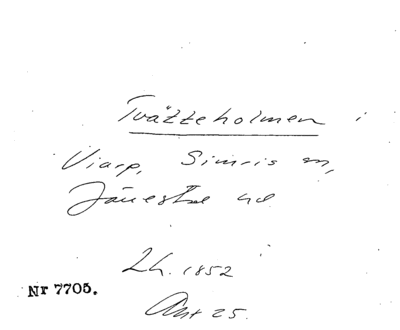 Tvätteholmen i
Viarp, Simris sn,
Järrestad hd
Lh. 1852
Nr 7705.
Akt 25.